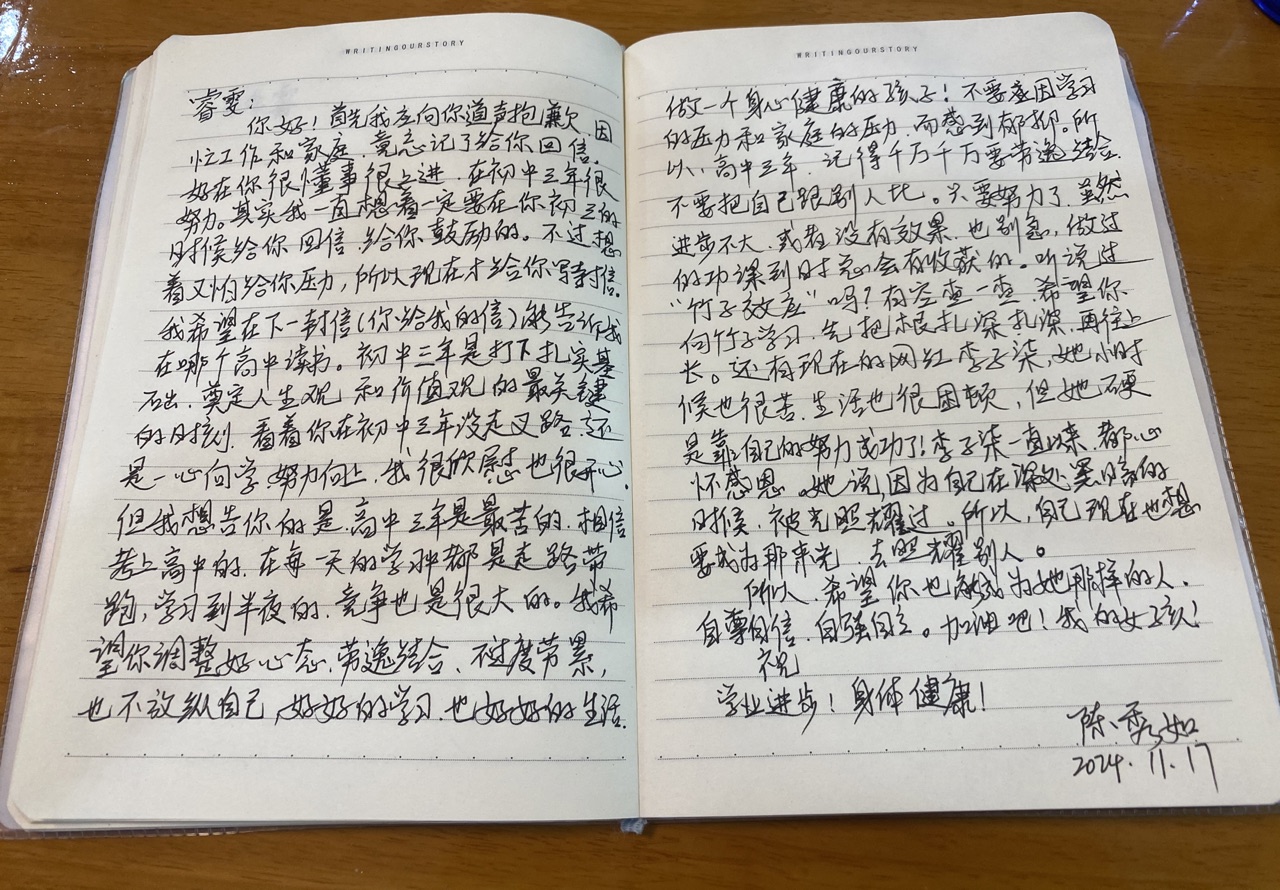 WRITINGOURSTORY
睿雯：
你好！首先我应向你道声抱歉，因
忙工作和家庭，竟忘记了给你回信。
好在你很懂事很上进，在初中三年很
努力。其实我一直想着一定要在你初三的
时候给你回信，给你鼓励的。不过，想
着又怕给你压力，所以现在才给你写封信。
我希望在下一封信(你给我的信)能告诉我
在哪个高中读书。初中三年是打下扎实基
石出，奠定人生观和价值观的最关键
的时刻，看着你在初中三年没走叉路，还
是一心向学，努力向上，我很欣慰也很开心。
但我想告你的是，高中三年是最苦的，相信
考上高中的，在每一天的学习中都是走路带
跑，学习到半夜的，竞争也是很大的。我希
望你调整好心态，劳逸结合，不过度劳累，
也不放纵自己，好好的学习，也好好的生活。
WRITINGOURSTORY
做一个身心健康的孩子！不要应因学习
的压力和家庭的压力，而感到郁抑。所
以，高中三年，记得千万千万要劳逸结合，
不要把自己跟别人比。只要努力了，虽然
进步不大，或者没有效果，也别急，做过
的功课到时总会有收获的。听说过
“竹子效应”吗？有空查一查，希望你
向竹子学习，先把根扎深扎深，再往上
长。还有现在的网红李子柒，她小时
候也很苦，生活也很困顿，但她硬
是靠自己的努力成功了！李子柒一直以来，都心
怀感恩。她说，因为自己在深处黑暗的
时候，被光照耀过。所以，自己现在也想
要成为那束光，去照耀别人。
所以，希望你也能成为她那样的人，
自尊自信，自强自立。加油吧！我的女孩！
祝
学业进步！身体健康！
陈秀如
2024.11.17